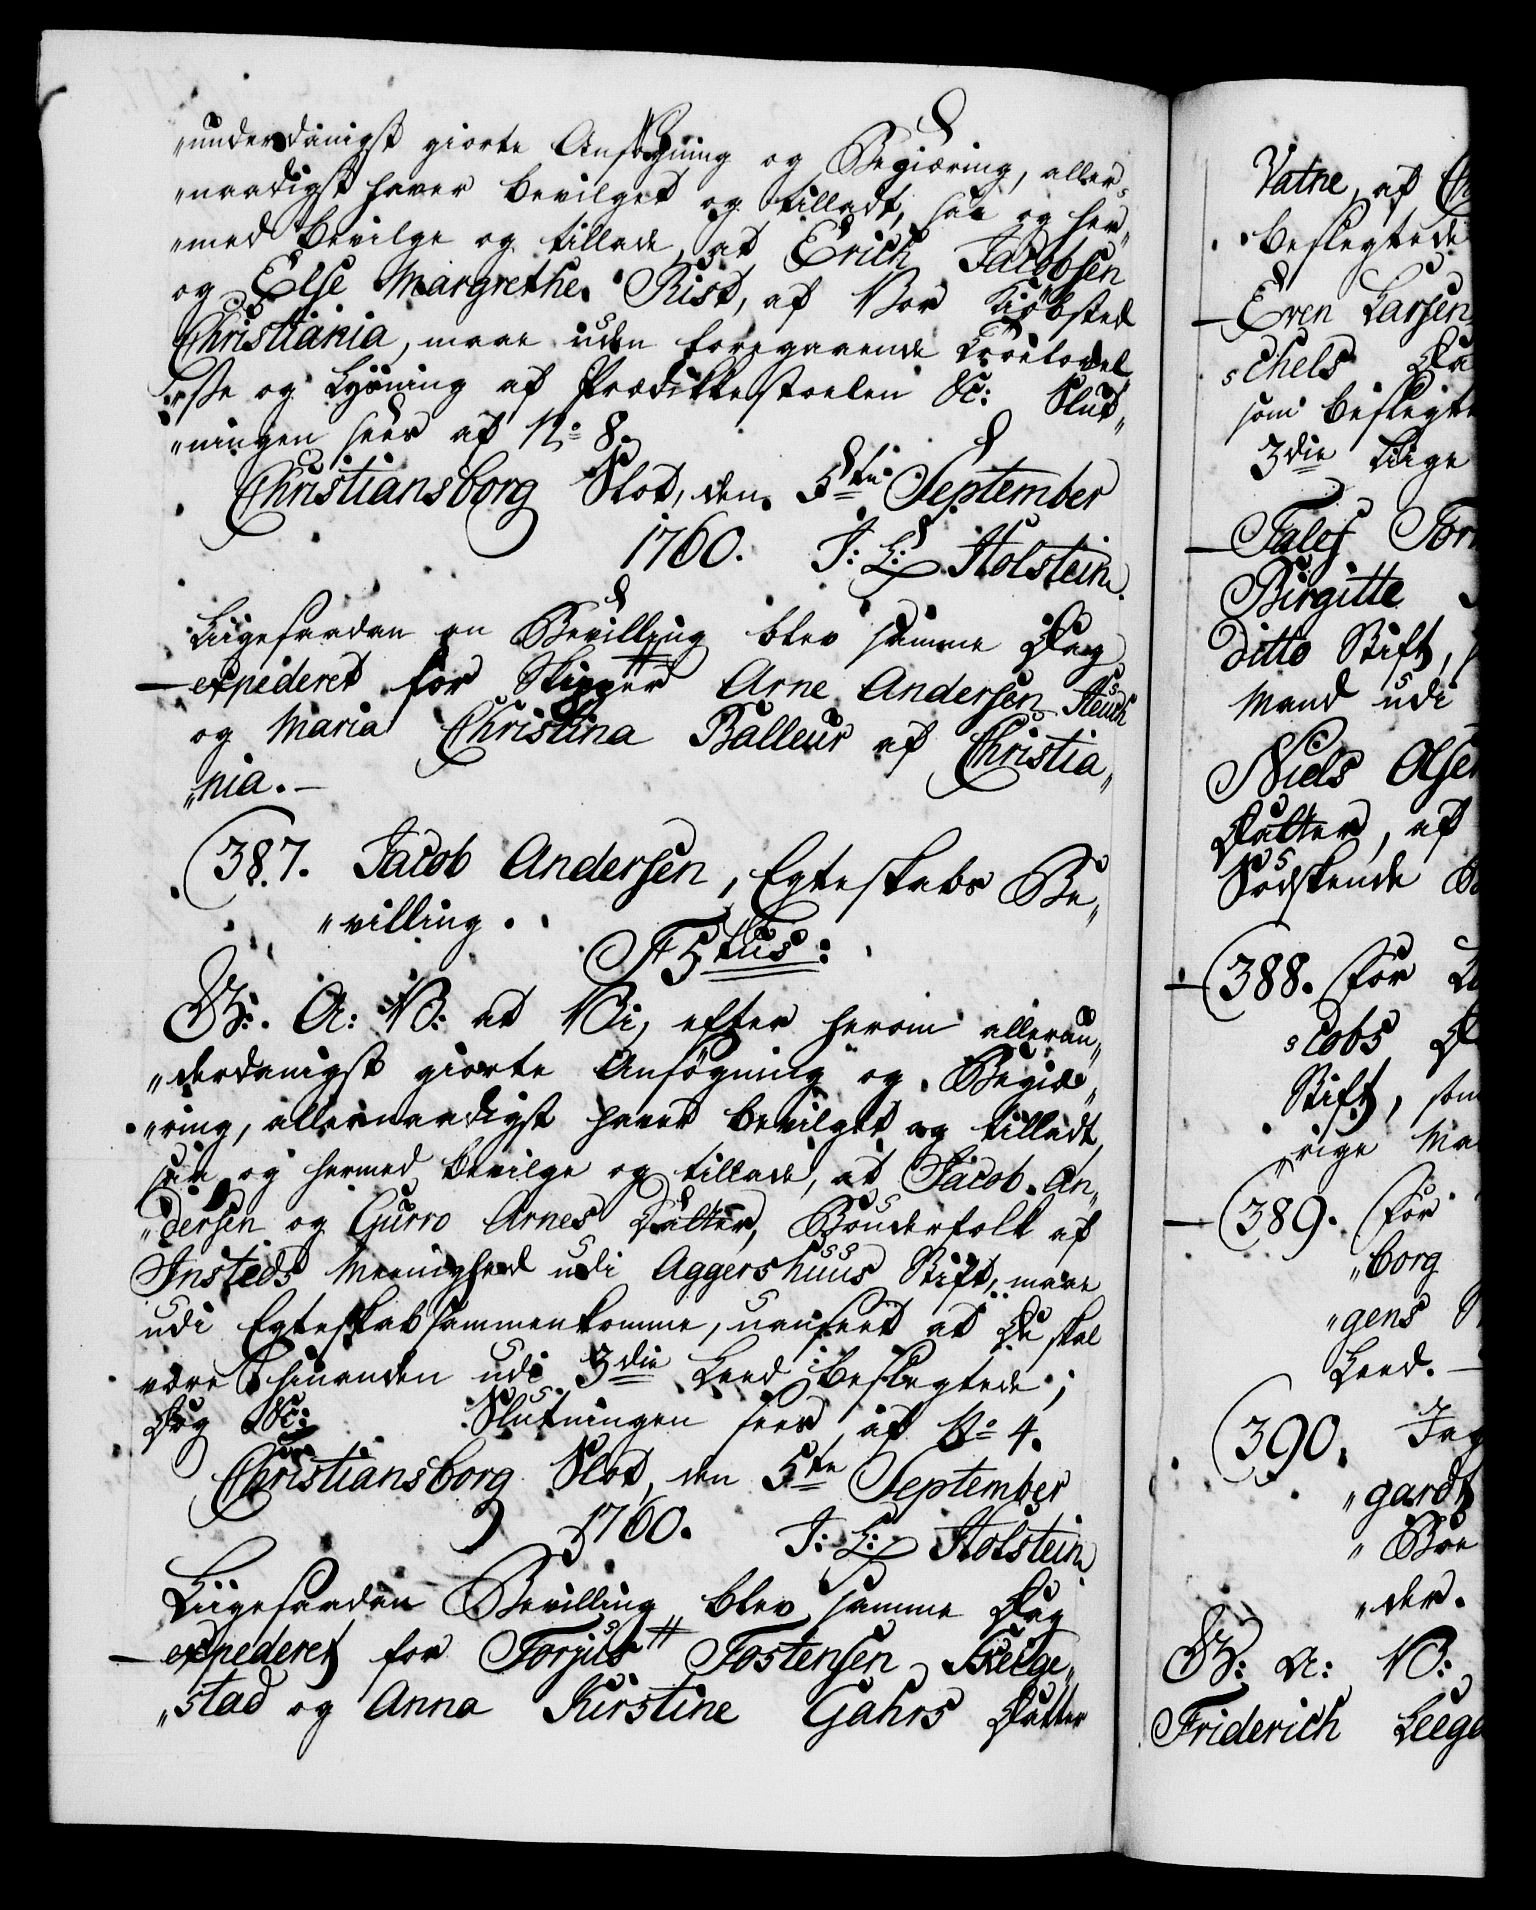 „underdanigst giorte Ansøgning og Begiæring, aller„
„naadigst haver bevilget og tilladt, saa og her„
„med bevilge og tillade, at Erich Jacobsen
og Else Margrethe Rist, af Vor Kiöbsted
Christiania, maae uden foregaaende Troelovel„
„se og Lysning af Prædikkestoelen &c: Slut„
„ningen seer af No 8.
Christiansborg Slot, den 5te September
1760. J: L: Holstein.
Liigesaadan en Bevilling blev samme Dag
expederet for Skipper Arne Andersen Heusch
og Maria Christina Balleur af Christia„
„nia.
387. Jacob Andersen, Egteskabs Be„
„villing.
F 5tus:
G: A: V: at Vi, efter herom allerun„
„derdanigst giorte Ansögning og Begiæ„
„ring, allernaadigst haver bevilget og tilladt,
saa og hermed bevilge og tillade, at Jacob An„
„dersen og Gurro Arnes Datter, Bönderfolk af
Insteds Meenighed udi Aggershuus Stift, maae
udi Egteskab sammenkomme, uanseet at De skal
være hinanden udi 3die Leed beslegtede;
Dog &c: Slutningen seer af No 4.
Christiansborg Slot, den 5te September
1760. J: L: Holstein
Liigesaadan Bevilling blev samme Dag
expederet for Torjus Tostensen Treige„
„stad og Anna Kirstine Gahrs Datter
Vatne, af
beslegtede
Even Larsen
schels Da
som beslegte
3die Liige
Talef Tor
Birgitte
ditto Stift,
Mand udi
Niels Olsen
Datter, af
Södskende B
388. For
scobs D
Stift, som
„rige Ma
389. For
„borg
„gens
Leed.
390. Jag
„gardt
„Bor
„der.
G: A: V:
Friderich Leege